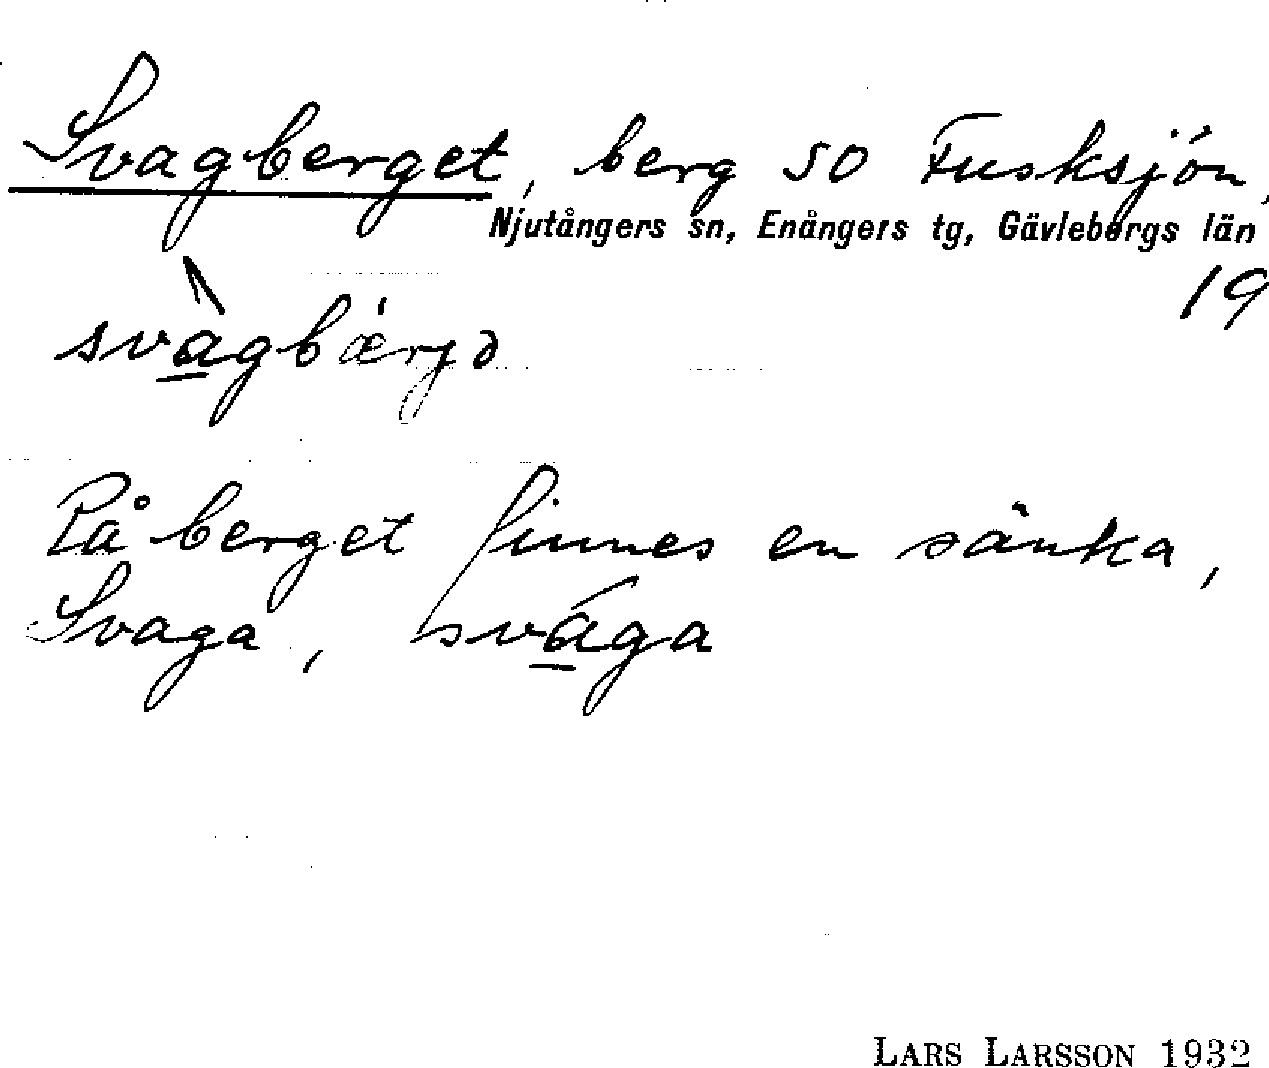 Svagberget, berg SO Fusksjön,
Njutångers sn, Enångers tg, Gävleborgs län
19
svàgbǽrjə
På berget finnes en sänka,
Svaga, svága
LARS LARSSON 1932